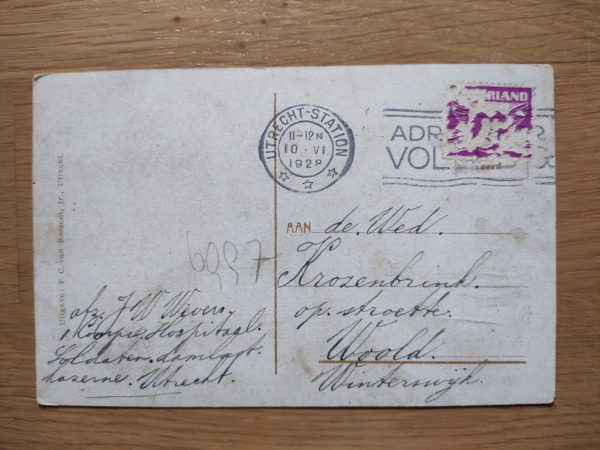 RLAND
UTRECHT-STATION
11-12N
10·VI
1928
ADR
VOL
AAN de. Wed.
Krosenbrink.
op. stroette.
Woold.
Winterswijk.
6997
afz. J W Wevers.
1 Compie. Hospitaal.
Soldaten.
kaserne. Utrecht.
Uitgave: F. C. van Rossem, Jr., Utrecht.